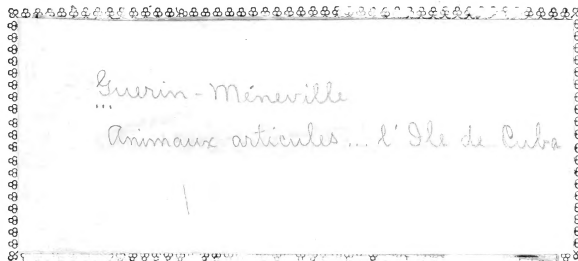 Guerin-Méneville
...
Animaux articules... l'Ile de Cuba